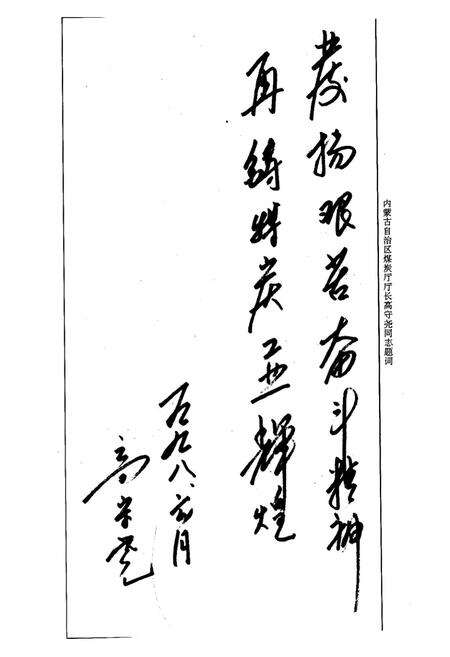 内蒙古自治区煤炭厅厅长高守尧同志题词
发扬艰苦奋斗精神
再铸煤炭工业辉煌
一九九八、元月
高守尧